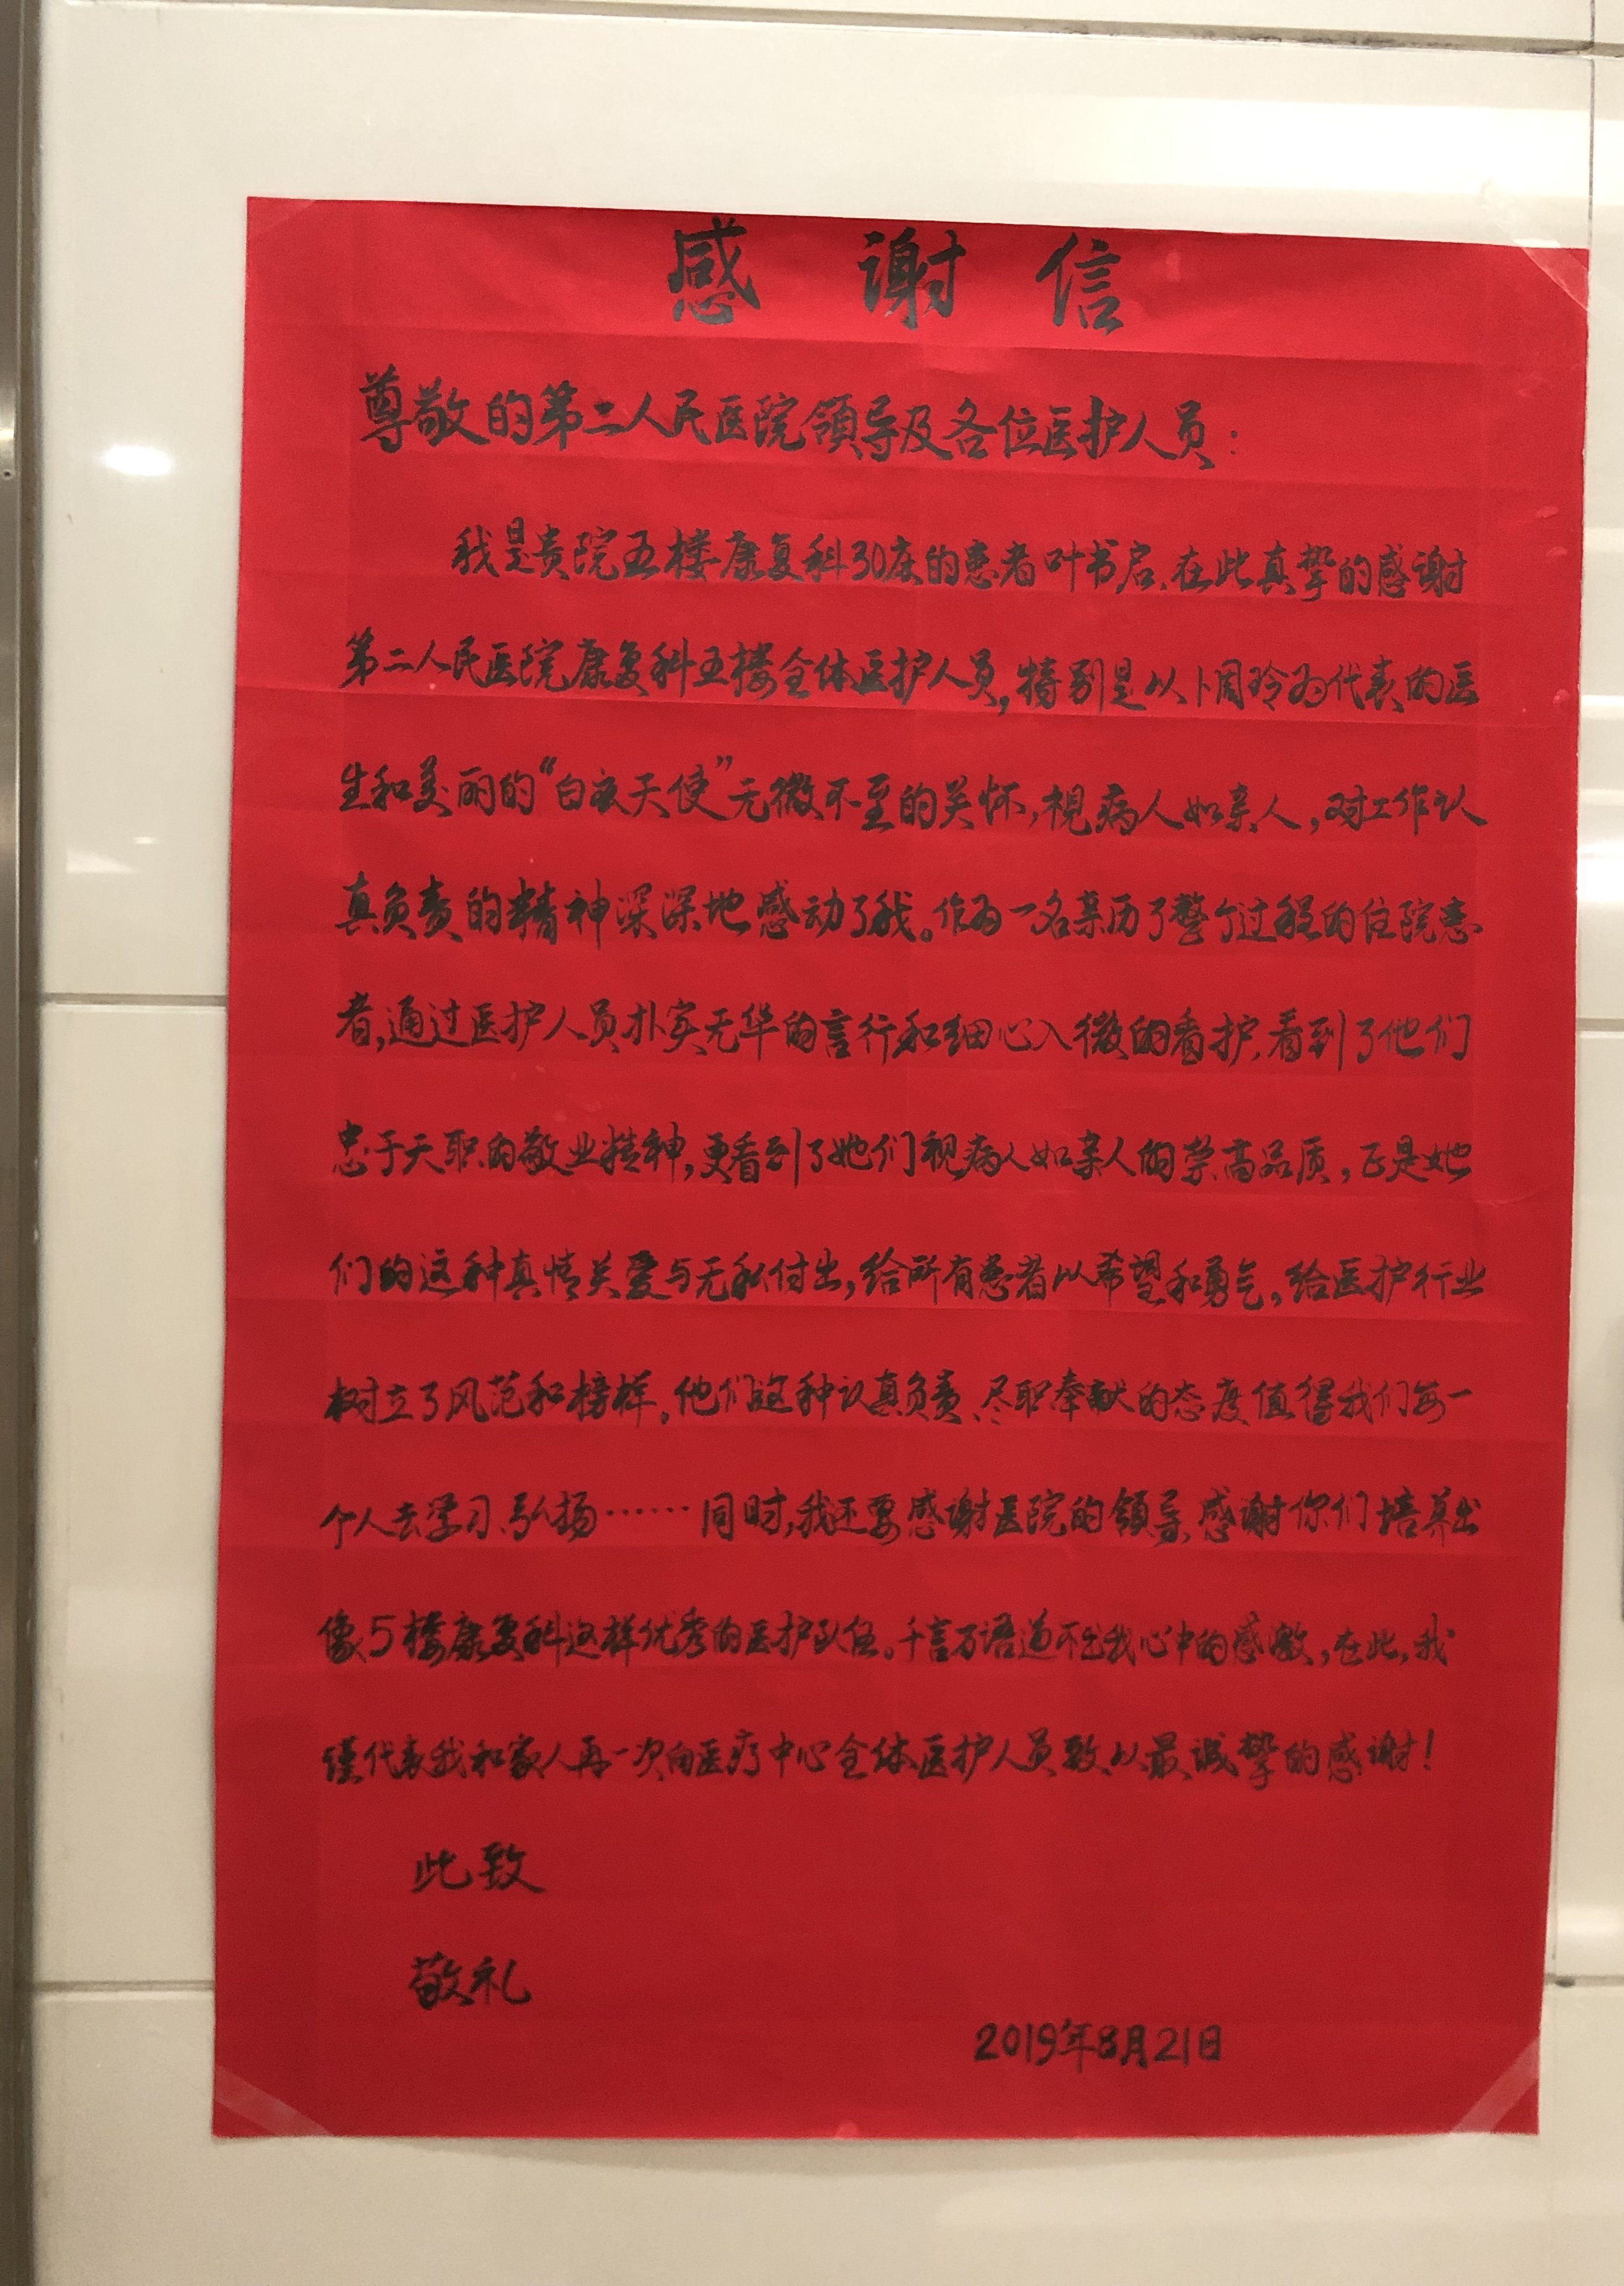 感谢信
尊敬的第二人民医院领导及各位医护人员：
我是贵院五楼康复科30床的患者叶书启，在此真挚的感谢
第二人民医院康复科五楼全体医护人员，特别是以卜周玲为代表的医
生和美丽的“白衣天使”无微不至的关怀，视病人如亲人，对工作认
真负责的精神深深地感动了我。作为一名亲历了整个过程的住院患
者，通过医护人员朴实无华的言行和细心入微的看护，看到了他们
忠于天职的敬业精神，更看到了她们视病人如亲人的崇高品质，正是她
们的这种真情关爱与无私付出，给所有患者以希望和勇气，给医护行业
树立了风范和榜样。他们这种认真负责、尽职奉献的态度值得我们每一
个人去学习、弘扬……同时，我还要感谢医院的领导，感谢你们培养出
像5楼康复科这样优秀的医护队伍。千言万语道不出我心中的感激，在此，我
谨代表我和家人再一次向医疗中心全体医护人员致以最诚挚的感谢！
此致
敬礼
2019年8月21日